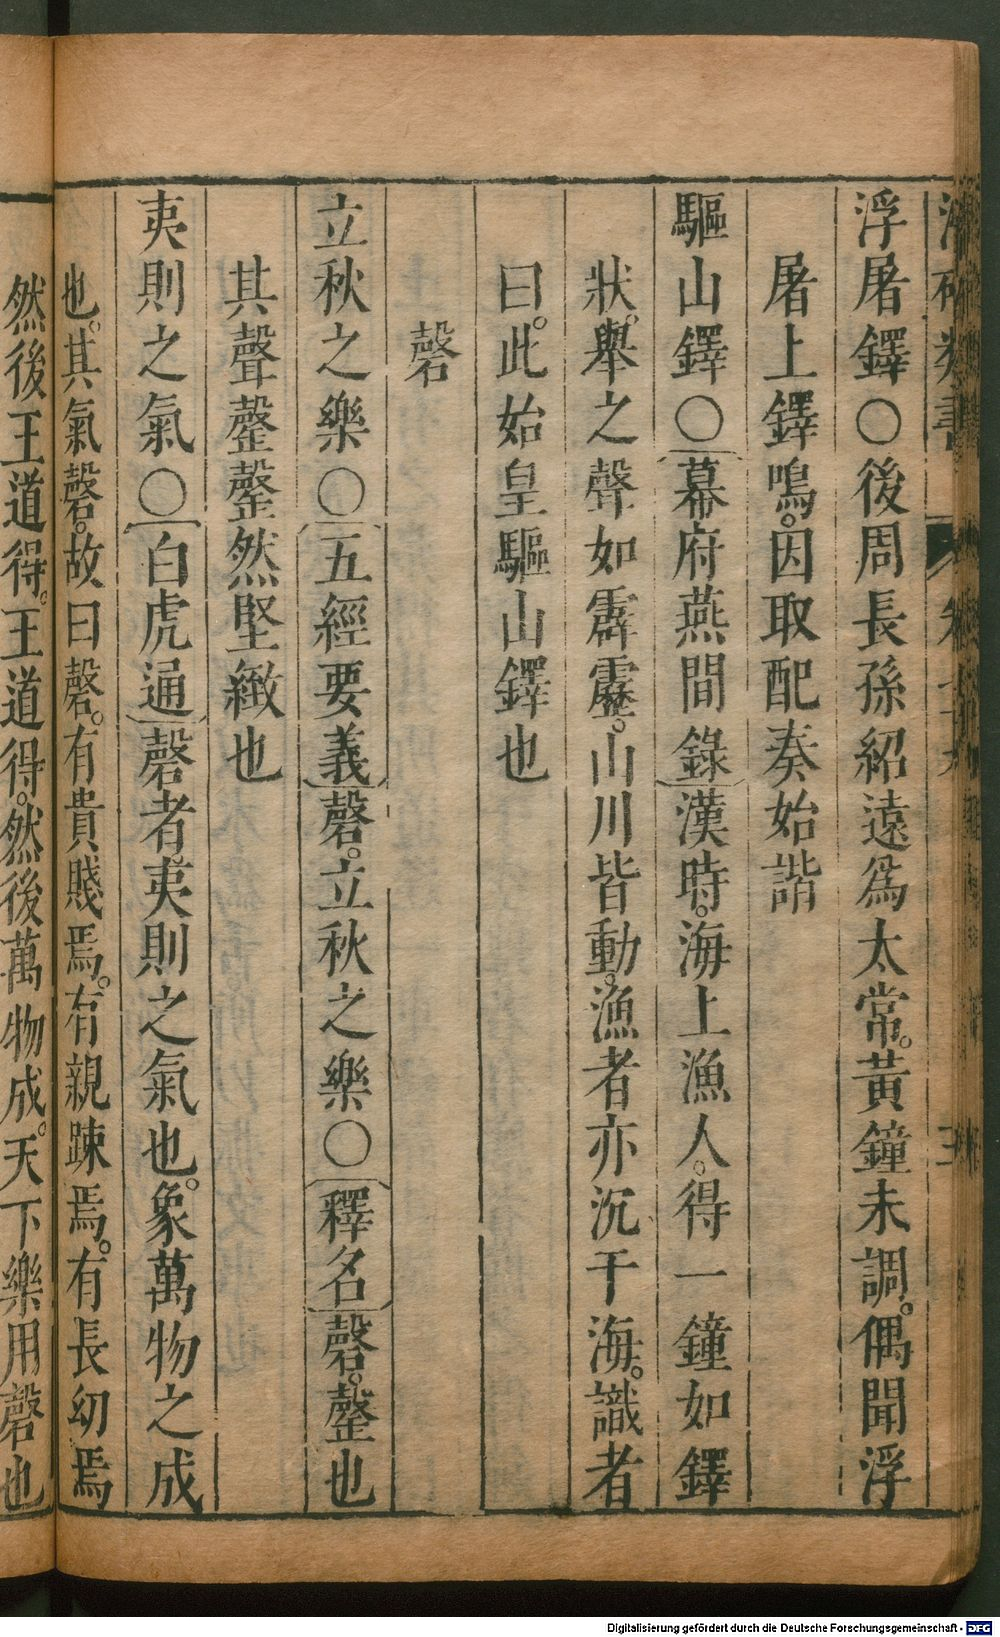 浮屠鐸○後周長孫紹遠爲太常。黃鐘未調。偶聞浮
屠上鐸鳴。因取配奏始諧
驅山鐸○幕府燕間錄漢時。海上漁人。得一鐘如鐸
狀。舉之聲如霹靂。山川皆動。漁者亦沉于海。識者
曰。此始皇驅山鐸也
磬
立秋之樂○五經要義磬。立秋之樂○釋名磬。罄也
其聲罄罄然堅緻也
夷則之氣○白虎通磬者夷則之氣也。象萬物之成
也。其氣磬。故曰磬。有貴賤焉。有親踈焉。有長幼焉
然後王道得。王道得。然後萬物成。天下樂用磬也
Digitalisierung gefördert durch die Deutsche Forschungsgemeinschaft - DFG